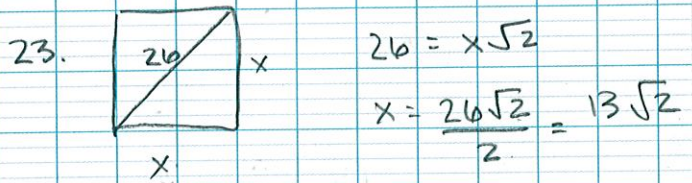 23.
26
x
x
26 = x√2
x = 26√2/2 = 13√2